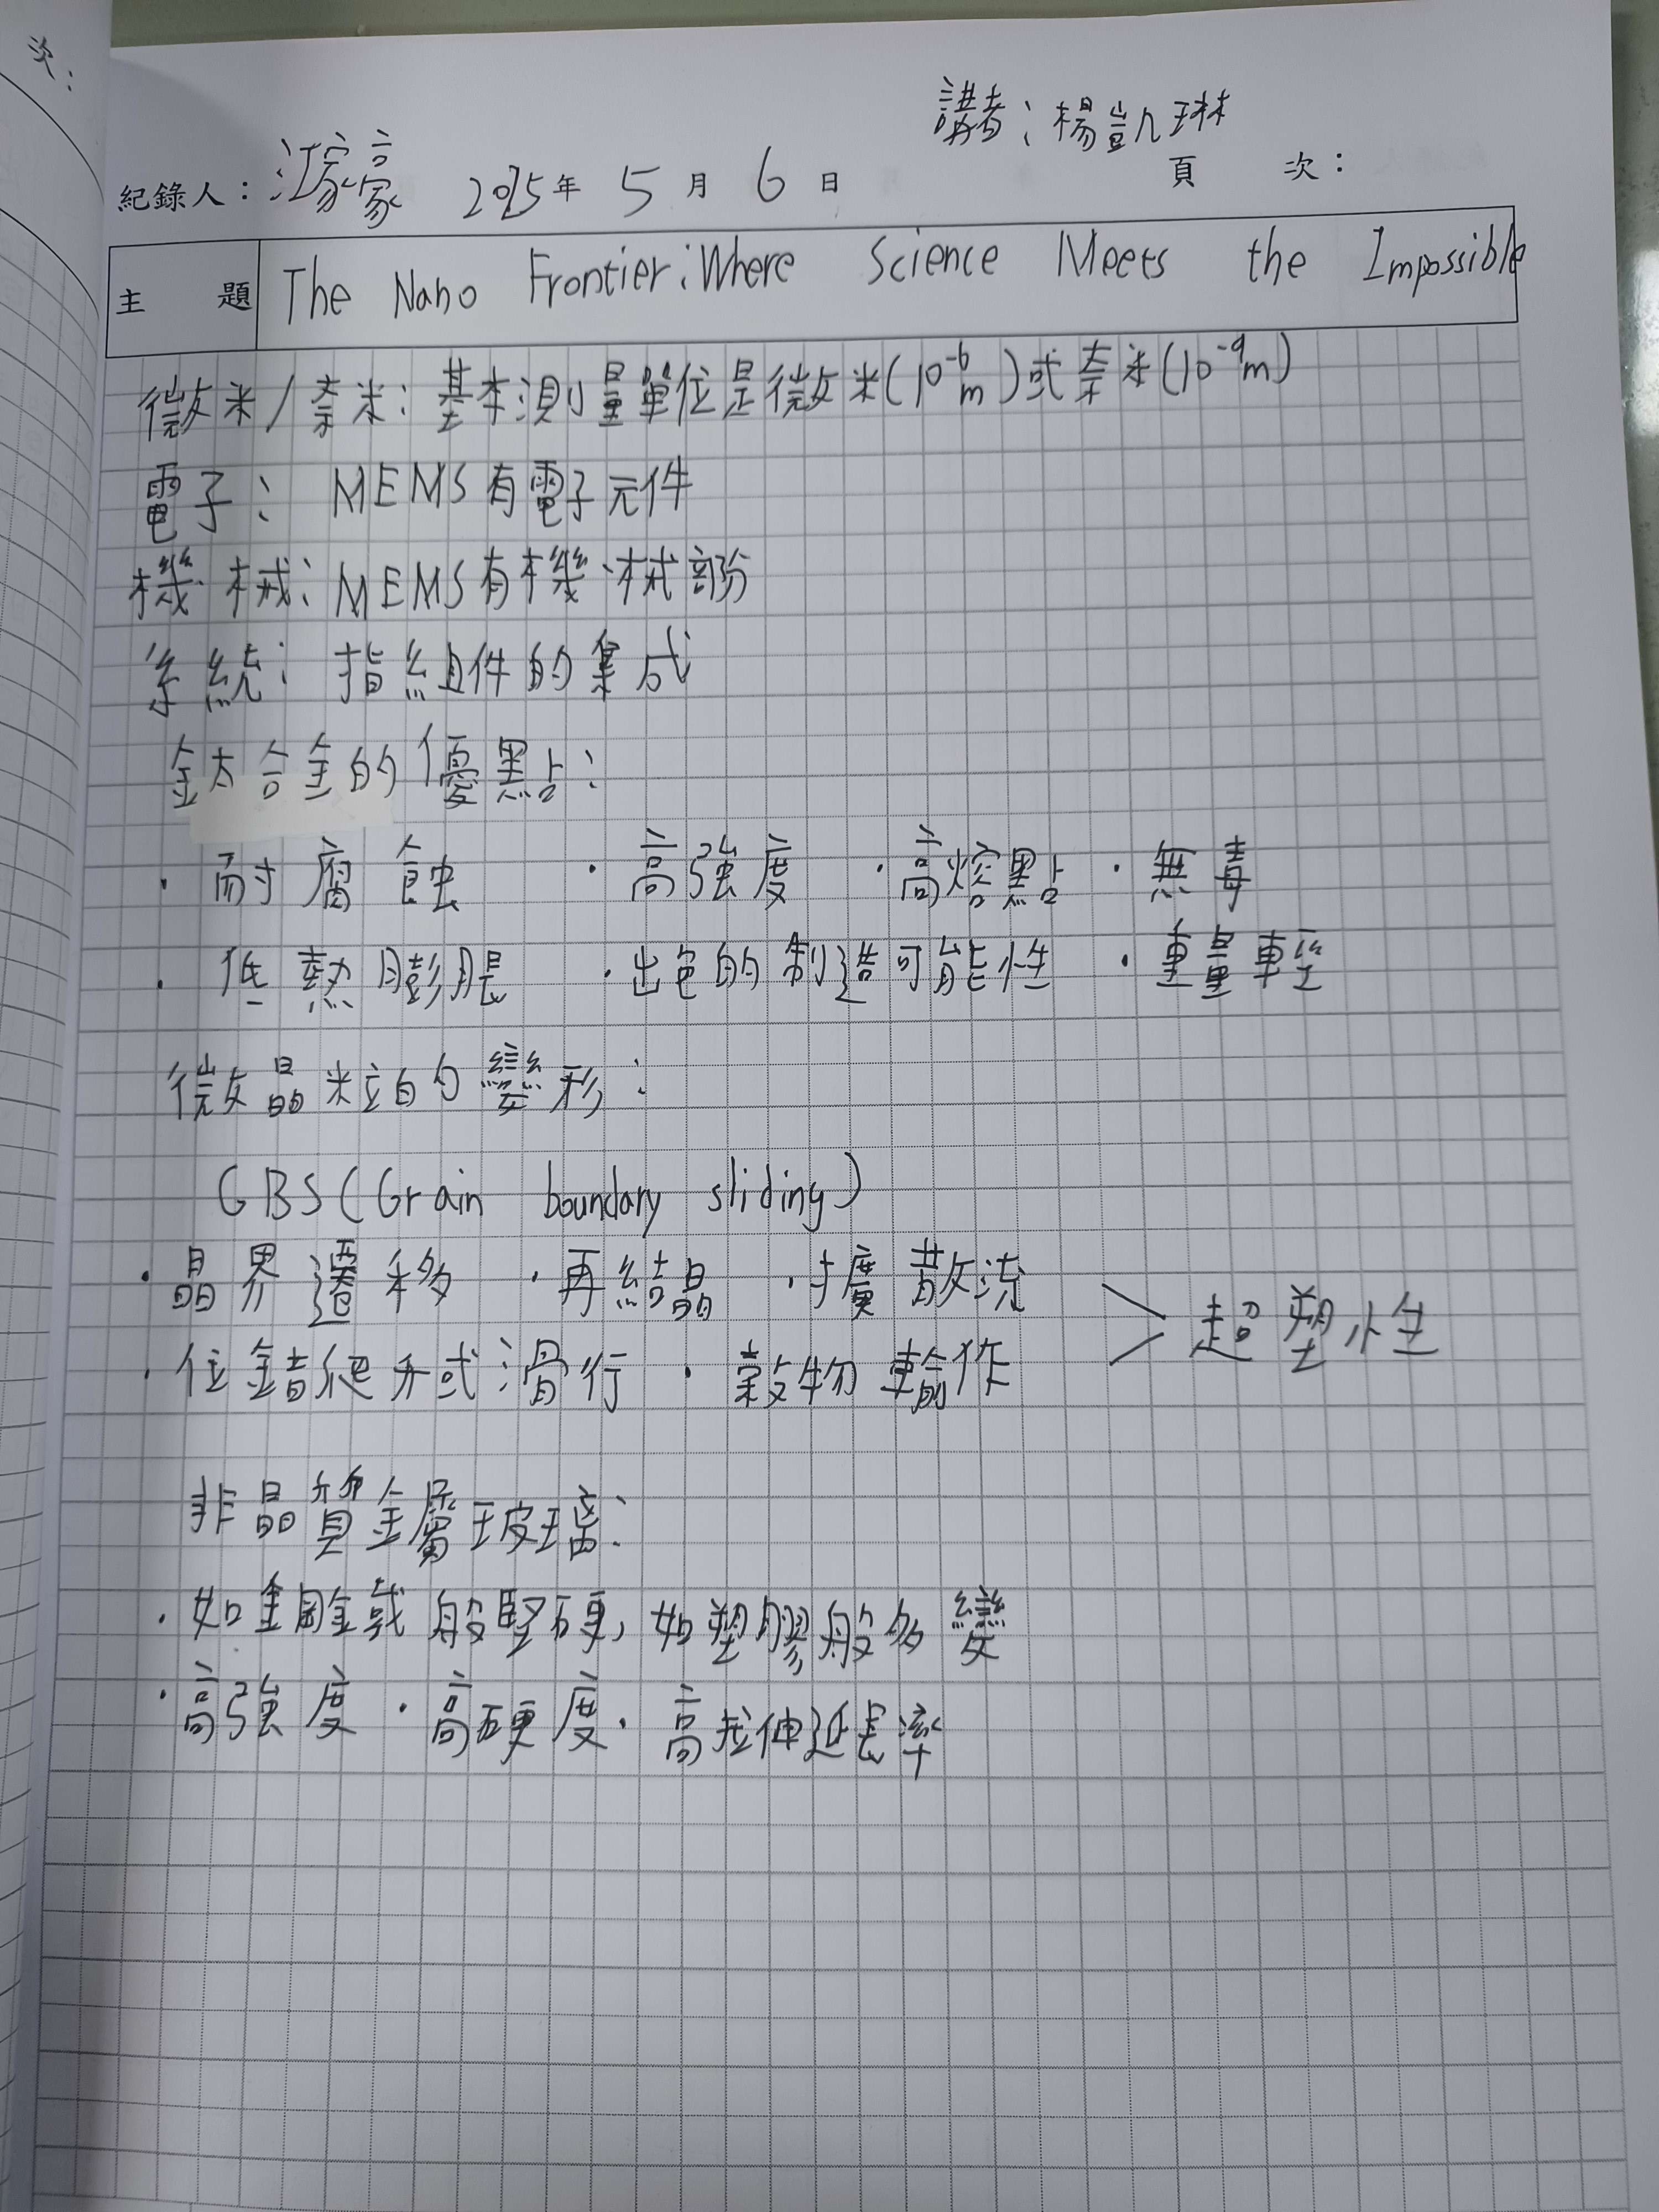 次：
講者：楊凱琳
紀錄人：江家豪 2025年 5月 6日 頁 次：
主 題 The Nano Frontier：Where Science Meets the Impossible
微米/奈米：基本測量單位是微米(10⁻⁶m)或奈米(10⁻⁹m)
電子：MEMS有電子元件
機械：MEMS有機械部份
系統：指組件的集成
鈦合金的優點：
·耐腐蝕 ·高強度 ·高熔點 ·無毒
·低熱膨脹 ·出色的制造可能性 ·重量輕
微晶粒的變形：
GBS(Grain boundary sliding)
·晶界遷移 ·再結晶 ·擴散流
超塑性
·位錯爬升或滑行 ·穀物輪作
非晶質金屬玻璃：
·如金剛鐵般堅硬，如塑膠般多變
·高強度 ·高硬度 ·高拉伸延長率